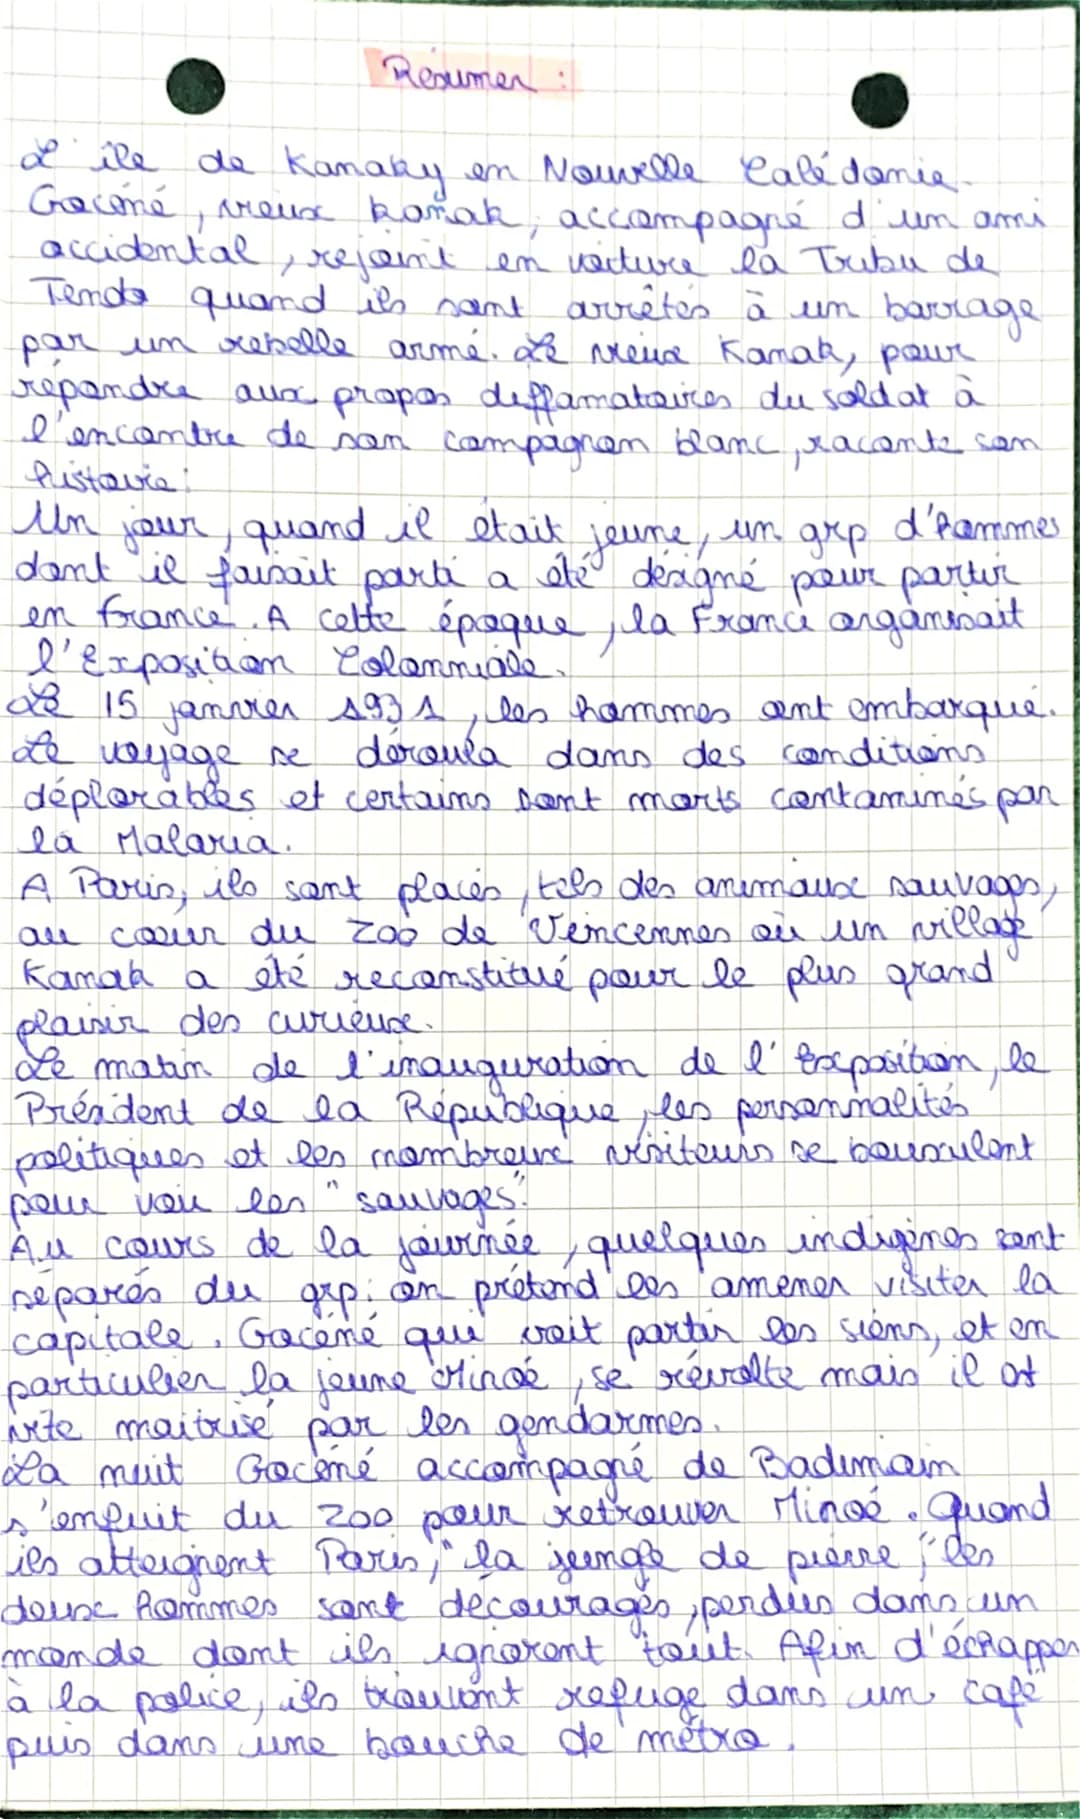 Résumer :
L'ile de Kanaky en Nouvelle Calédonie.
Gocéné, vieux kanak, accompagné d'un ami
accidental, rejoint en voiture la Tribu de
Tendo quand ils sont arrêtés à un barrage
par un rebelle armé. Le vieux Kanak, pour
répondre aux propos deffamatoires du soldat à
l'encontre de son compagnon blanc, raconte son
histoire :
Un jour, quand il était jeune, un grp d'hommes
dont il faisait parti a été désigné pour partir
en france. A cette époque, la France organisait
l'Exposition Colonniale.
Le 15 janvier 1931, les hommes ont embarqué.
Le voyage se déroula dans des conditions
déplorables et certains sont morts contaminés par
la Malaria.
A Paris, ils sont placés, tels des animaux sauvages,
au coeur du zoo de Vincennes où un village
Kanak a été reconstitué pour le plus grand
plaisir des curieux.
Le matin de l'inauguration de l'Exposition, le
Président de la République, les personnalités
politiques et les nombreux visiteurs se bousculent
pour voir les "sauvages".
Au cours de la journée, quelques indigènes sont
séparés du grp : on prétend les amener visiter la
capitale. Gocéné qui voit partir les siens, et en
particulier la jeune Minoé, se révolte mais il est
vite maitrisé par les gendarmes.
La nuit Gocéné accompagné de Badimoin
s'enfuit du zoo pour retrouver Minoé. Quand
ils atteignent Paris, "la jungle de pierre", les
deux hommes sont découragés, perdus dans un
monde dont ils ignorent tout. Afin d'échapper
à la police, ils trouvent refuge dans un café
puis dans une bouche de métro.